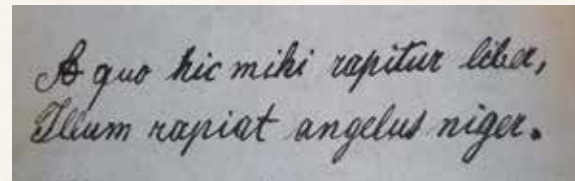 A quo hic mihi rapitur liber,
Illum rapiat angelus niger.